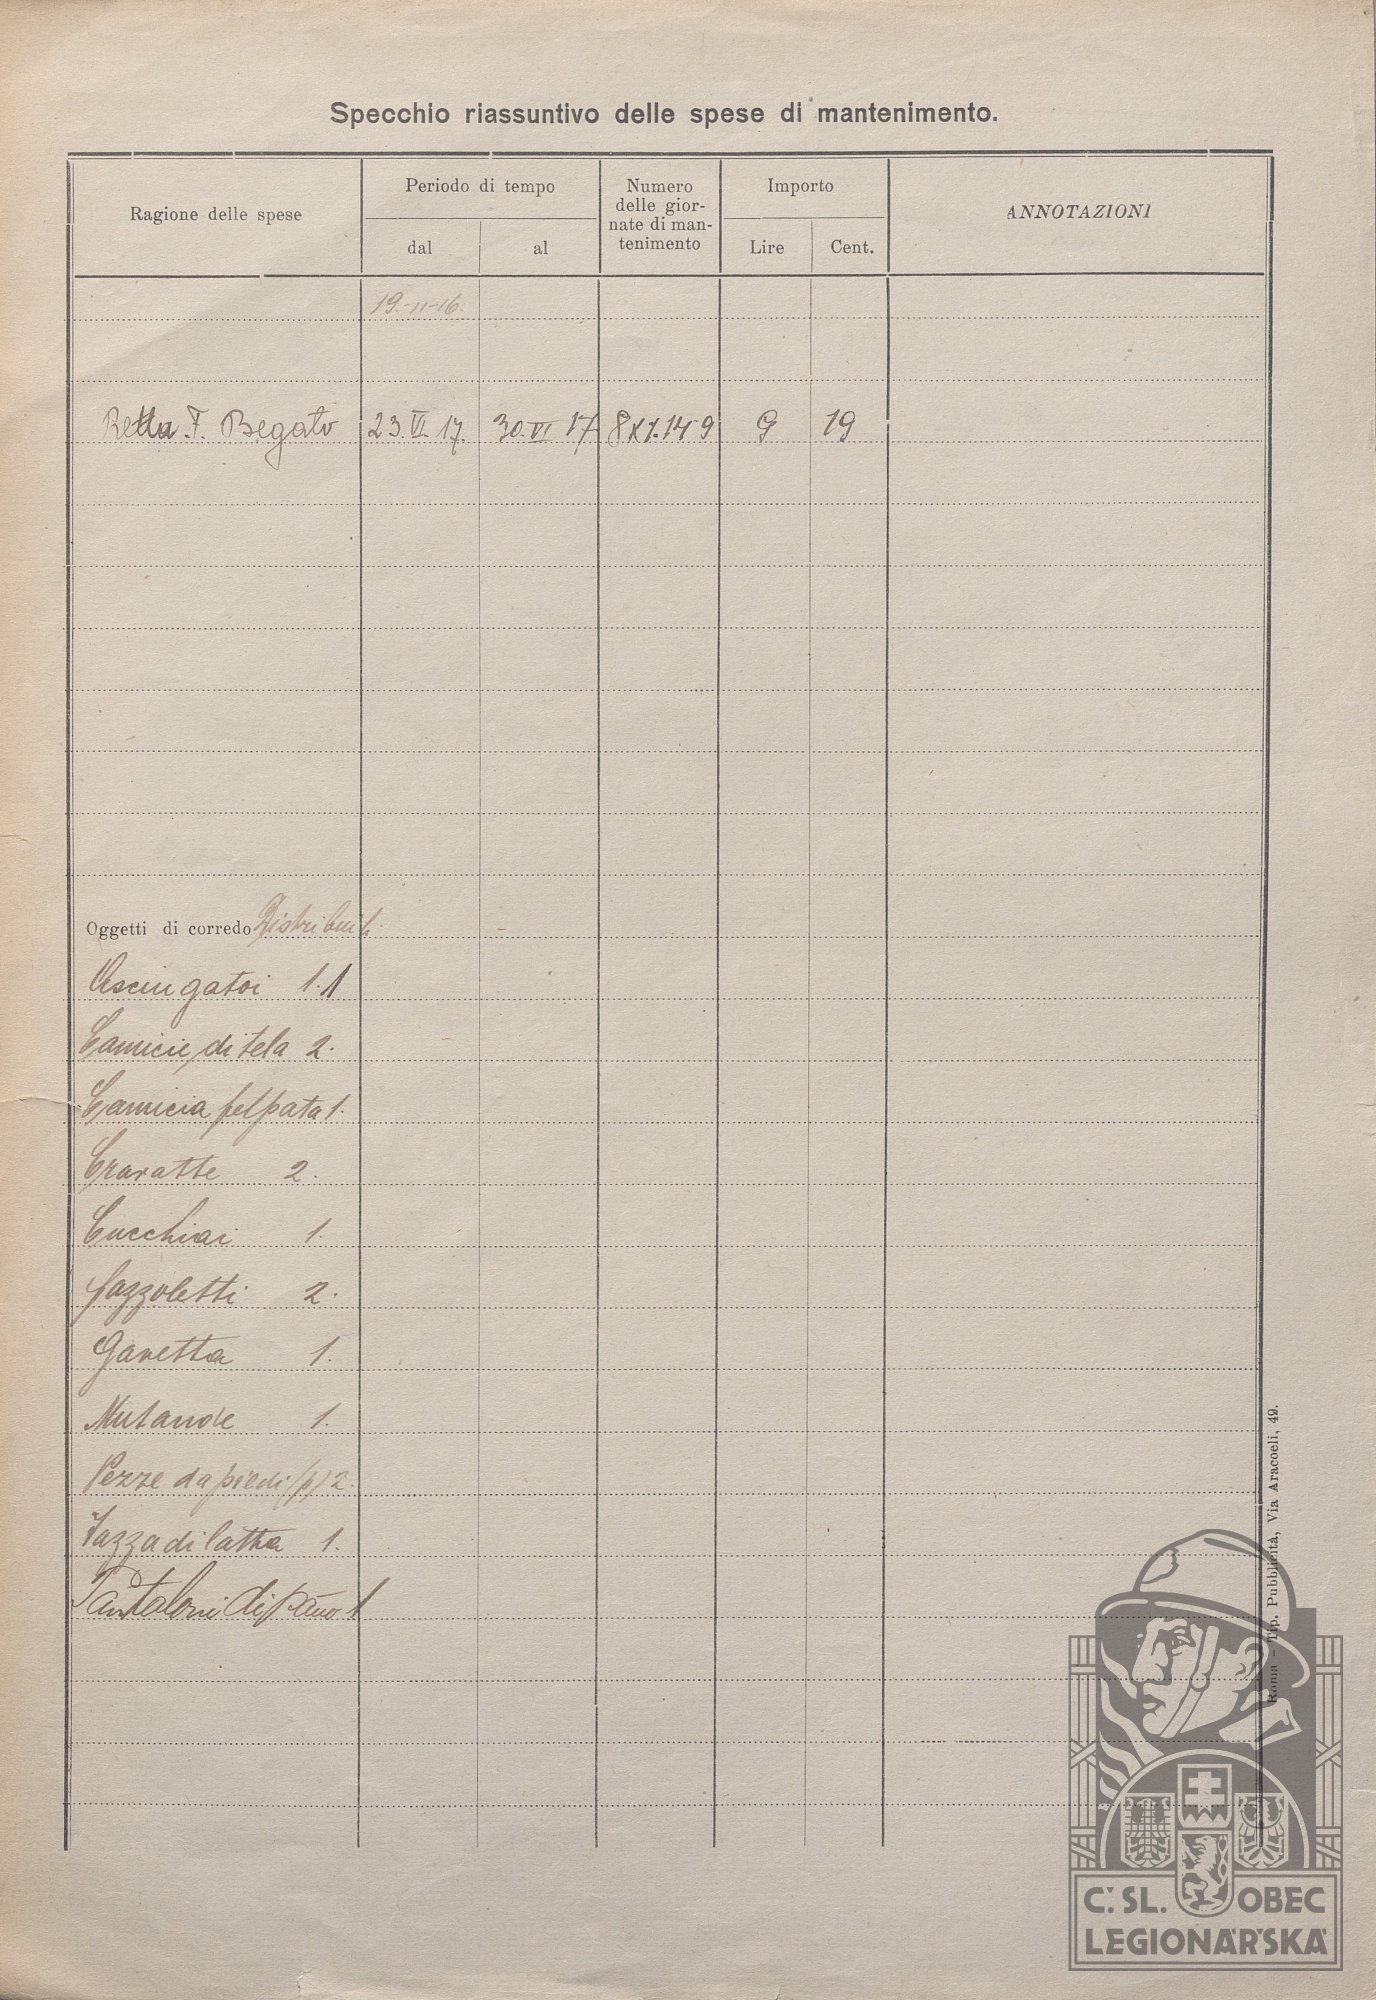 Specchio riassuntivo delle spese di mantenimento.
Ragione delle spese
Periodo di tempo
dal
al
Numero
delle gior-
nate di man-
tenimento
Importo
Lire
Cent.
ANNOTAZIONI
19-11-16.
Retta. F. Begato 23.VI.17. 30.VI 17 8x1.149 9 19
Oggetti di corredo Distribuiti
Asciugatoi 1.1
Camicie di tela 2.
Camicia felpata 1.
Cravatte 2.
Cucchiai 1.
fazzoletti 2.
Gavetta 1.
Mutande 1.
Pezze da piedi (p) 2.
Tazza di latta 1.
Pantaloni di pano 1
Roma - Tip. Pubblicità, Via Aracoeli, 49.
Č. SL. OBEC
LEGIONÁŘSKÁ